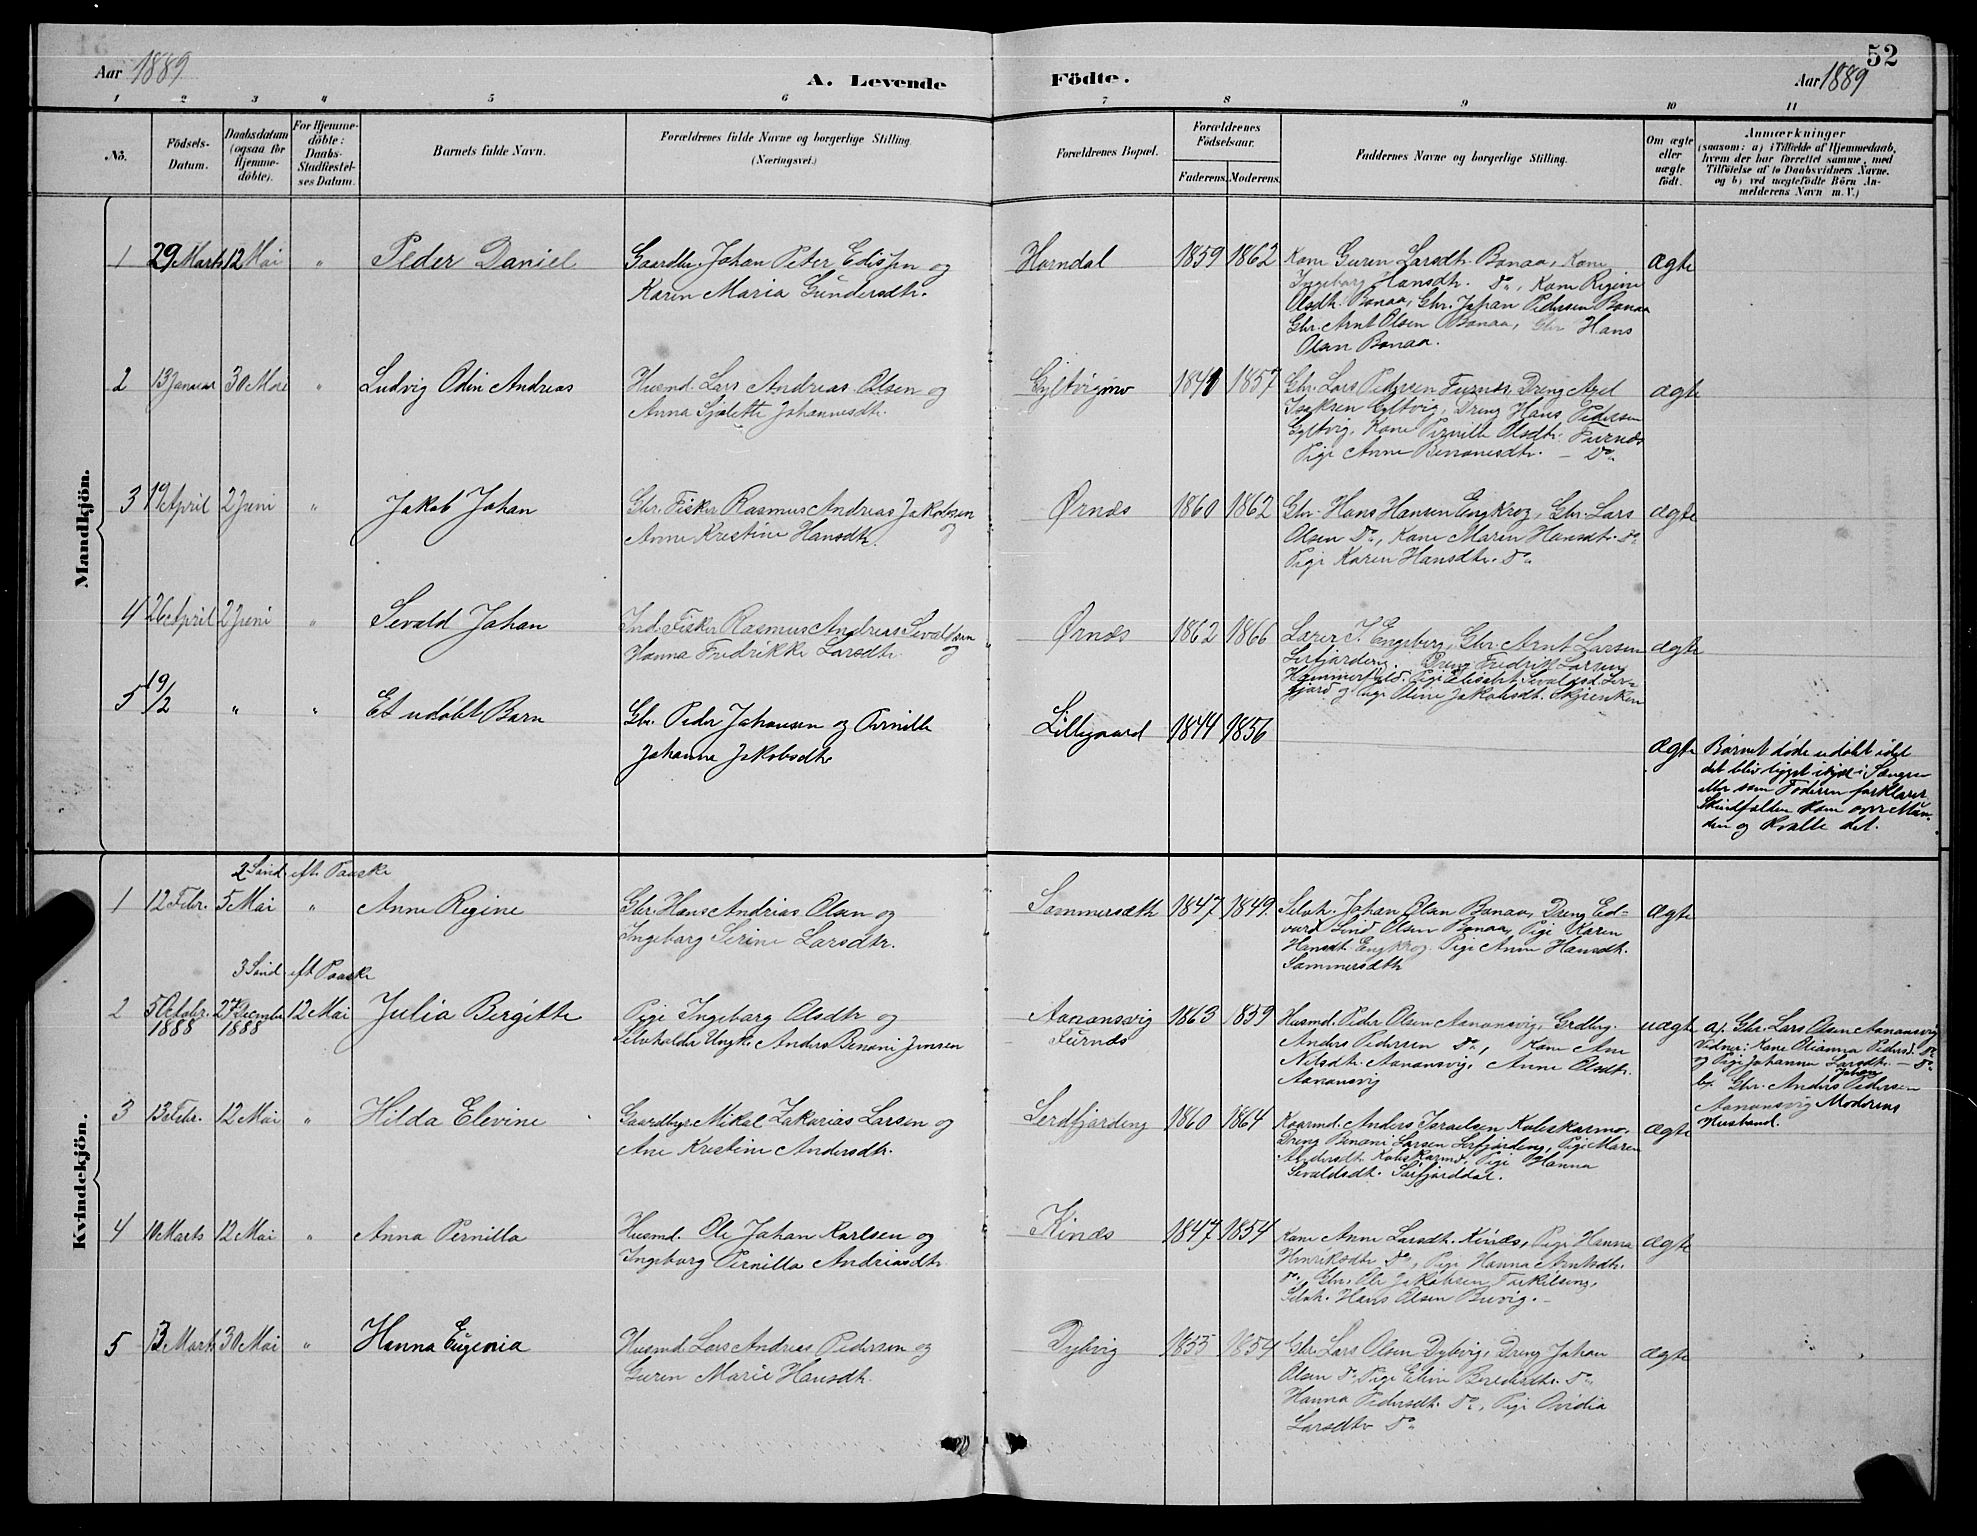 52
Aar 1889
A. Levende
Födte.
Aar 1889
1 2 3 4 5 6 7 8 9 10 11
No.
Födsels-Datum.
Daabsdatum (ogsaa for Hjemme-döbte).
For Hjemme-döbte: Daabs-Stadfæstel-ses Datum.
Barnets fulde Navn.
Forældrenes fulde Navne og borgerlige Stilling.
(Næringsvei.)
Forældrenes Bopæl.
Forældrenes Födselsaar.
Faderens. Moderens.
Faddernes Navne og borgerlige Stilling.
Om ægte eller uægte født.
Anmærkninger
(saasom: a) i Tilfælde af Hjemmedaab,
hvem der har forrettet samme, med
Tilföielse af to Daabsvidners Navne.
og b) ved uægtefödte Börn An-
melderens Navn m. V.)
Mandkjön.
1 29 Marts 12 Mai " Peder Daniel
Gaardbr. Johan Peter Edisen og
Karen Maria Gundersdtr.
Horndal 1859 1862
Kone Guren Larsdtr. Bonaa, Kone
Ingeborg Hansdtr. Do., Kone Regine
Olsdtr. Bonaa, Gbr. Johan Pedersen Bonaa
Gbr. Arnt Olsen Bonaa, Gbr Hans
Olsen Bonaa.
Ægte
2 13 Januar 30 Mai " Ludvig Odin Andreas
Husmd. Lars Andreas Olsen og
Anna Sjolette Johannesdtr.
Gyltvigmo 1841 1857
Gbr. Lars Pedersen Furnæs, Dreng Axel
Isaksen Gyltvig, Dreng Hans Pedersen
Gyltvig, Kone Pernille Olsdtr. Furnæs
Pige Anne Benonisdtr. — Do.
Ægte
3 19 April 2 Juni " Jakob Johan
Gbr. Fisker Rasmus Andreas Jakobsen
og
Anne Kristine Hansdtr.
Ørnæs 1860 1862
Gbr. Hans Hansen Engkrog, Gbr. Lars
Olsen Do., Kone Maren Hansdtr. Do.
Pige Karen Hansdtr. Do.
Ægte
4 26 April 2 Juni " Sevald Johan
Ind. Fisker Rasmus Andreas Sevaldsen
og
Hanna Fredrikke Larsdtr.
Ørnæs 1862 1866
Lærer J. Engeberg, Gbr. Arnt Larsen
Dreng Fredrik Larsen
Hammerfeld. Pige Elisabet Sevaldsd. Ser-
fjord og Pige Oline Jakobsdt.
Ægte
5 19/2 " " Et udøbt Barn
Gbr. Peder Johansen og Pernille
Johanne Jakobsdtr
Lillegaard 1844 1856
Ægte
Barnet døde udøbt idet
det blev ligget ihjel i Sængen
eller som Foderen forklarer
Skindfelden kom over Mun-
den og kvalte det.
Kvindekjön.
2 Sønd. eft. Paaske
1 12 Febr. 5 Mai " Anne Regine
Gbr. Hans Andreas Olsen og
Ingeborg Serine Larsdtr.
Sommersæth 1847 1849.
Selvh. Johan Olsen Bonaa, Dreng Ed-
vard Lind Olsen Bonaa, Pige Karen
Hansdt. Engkrog. Pige Anne Hansdt.
Sommersdth
Ægte
3 Sønd. eft Paaske
2 5 Octobr. 1888 27 Decembr 1888 12 Mai Julia Birgitte
Pige Ingeborg Olsdtr og
Selvholder Ungk. Anders Benoni Jensen
Aanansvig
Furnæs
1863 1859
Husmd. Peder Olsen Aanansvig, Grdbrg.
Anders Pedersen Do., Kone Ane
Nilsdtr. Aanansvig, Anne Olsdtr.
Aanansvig
uægte
a). Gbr. Lars Olsen Aanansvig
Vidner: Kone Olianna Pedersd. Do.
og Pige Johanna Larsdtr. — Do.
Johan
b). Gbr. Anders Pedersen
Aanansvig Moderens
Husbond.
3 13 Febr. 12 Mai " Hilda Elevine
Gaardbgr Mikal Zakarias Larsen og
Ane Kristine Andersdtr.
Serdfjarding 1860 1864
Kaarmd. Anders Israelsen Kobskarmo,
Dreng Benoni Larsen Serfjarding, Pige Maren
Andersdt. Kobskarmo, Pige Hanna
Sevaldsdt. Sørfjorddal.
Ægte
4 10 Marts 12 Mai " Anna Pernilla
Husmd. Ole Johan Karlsen og
Ingeborg Pernilla Andriasdtr
Kinæs 1847 1854
Kone Anne Larsdt. Kinæs, Pige Hanna
Henriksdtr. Do., Pige Hanna Arntsdtr.
Do., Gbr. Ole Jakobsen Torkilseng,
Selvh. Hans Olsen Buvig. —
Ægte
5 13 Marts 30 Mai " Hanna Eugenia
Husmd. Lars Andreas Pedersen og
Guren Marie Hansdtr.
Dybvig 1855 1854
Gbr. Lars Olsen Dybvig, Dreng Johan
Olsen Do. Pige Elen Do.
Hanna Pedersdt. Do., Pige Ovidia
Larsdtr Do.
Ægte